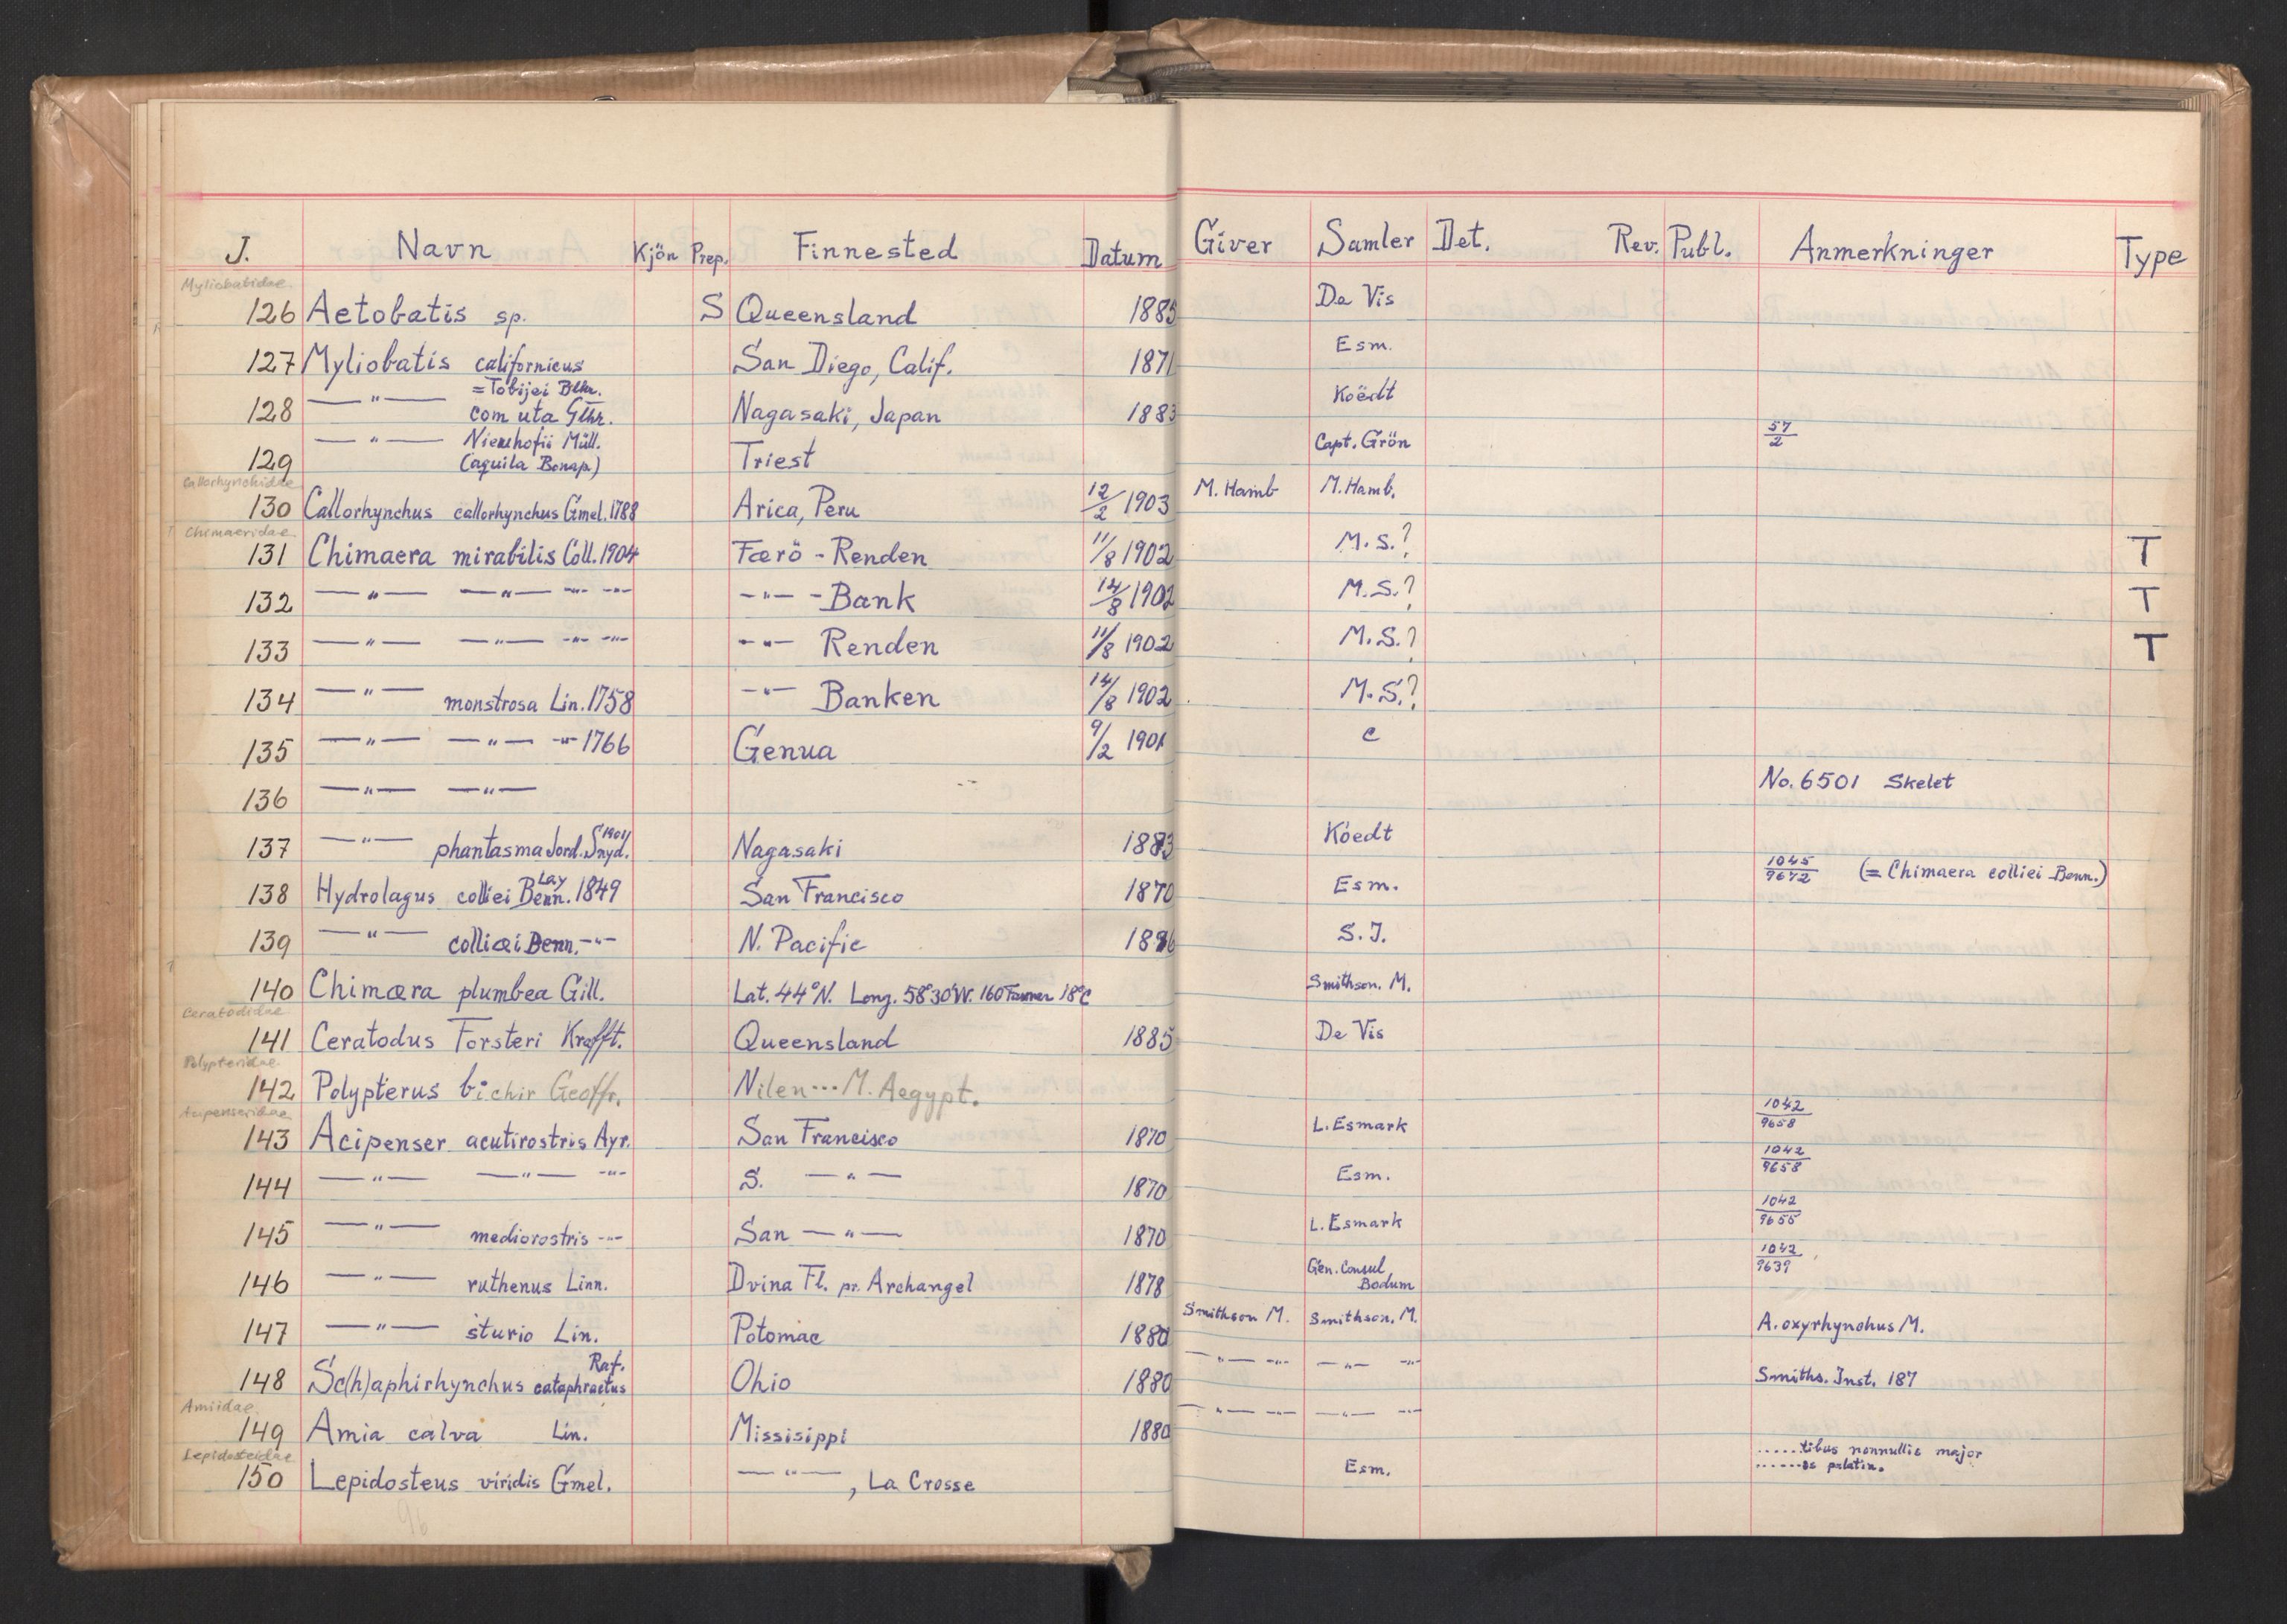 J. Navn Kjön Prep. Finnested Datum Giver Samler Det. Rev. Publ. Anmerkninger Type
Myliobatidae.
126 Aetobatis sp. S Queensland 1885 De Vis
127 Myliobatis californicus San Diego, Calif. 1871 Esm.
= Tobijei Blkr.
128 —"— cornuta Gthr. Nagasaki, Japan 1883 Koëdt
—"— Nieuhofii Müll.
129 (aquila Bonap.) Triest Capt. Grön 57/2
Callorhynchidae
130 Callorhynchus callorhynchus Gmel. 1788 Arica, Peru 12/2 1903 M. Hamb M. Hamb.
Chimaeridae
131 Chimaera mirabilis Coll. 1904 Færö - Renden 11/8 1902 M. S.? T
132 —"— —"— -"- -"- -"- - Bank 14/8 1902 M. S.? T
133 —"— —"— -"- -"- -"- Renden 11/8 1902 M. S.? T
134 —"— monstrosa Lin. 1758 -"- Banken 14/8 1902 M. S.?
135 —"— —"— -"- 1766 Genua 9/2 1901 C
136 —"— —"— No. 6501 Skelet
137 —"— phantasma Jord. Snyd. 1904 Nagasaki 1883 Koedt
138 Hydrolagus colliei Lay Benn. 1849 San Francisco 1870 Esm. 1045/9672 (= Chimaera colliei Benn.)
139 —"— colliæi Benn. -"- N. Pacific 1896 S. I.
140 Chimæra plumbea Gill. Lat. 44° N. Long. 58°30' W. 160 Favner 18°C Smithson. M.
Ceratodidae
141 Ceratodus Forsteri Krefft. Queensland 1885 De Vis
Polypteridae.
142 Polypterus bichir Geoffr. Nilen ... M. Aegypt.
Acipenseridae
143 Acipenser acutirostris Ayr. San Francisco 1870 L. Esmark 1042/9658
144 —"— —"— -"- S. —"— 1870 Esm. 1042/9658
145 —"— mediorostris -"- San —"— 1870 L. Esmark 1042/9655
146 —"— ruthenus Linn. Dvina Fl. pr. Archangel 1878 Gen. Consul Bodum 1042/9639
147 —"— sturio Lin. Potomac 1880 Smithson M. Smithson. M. A. oxyrhynchus M.
148 Sc(h)aphirhynchus cataphractus Raf. Ohio 1880 —"— -"- —"— -"- Smiths. Inst. 187
Amiidae.
149 Amia calva Lin. Missisippi 1880 —"— -"- —"— -"-
Lepidosteidae
150 Lepidosteus viridis Gmel. —"—, La Crosse Esm. .....tibus nonnullis major
......is palatin.
96